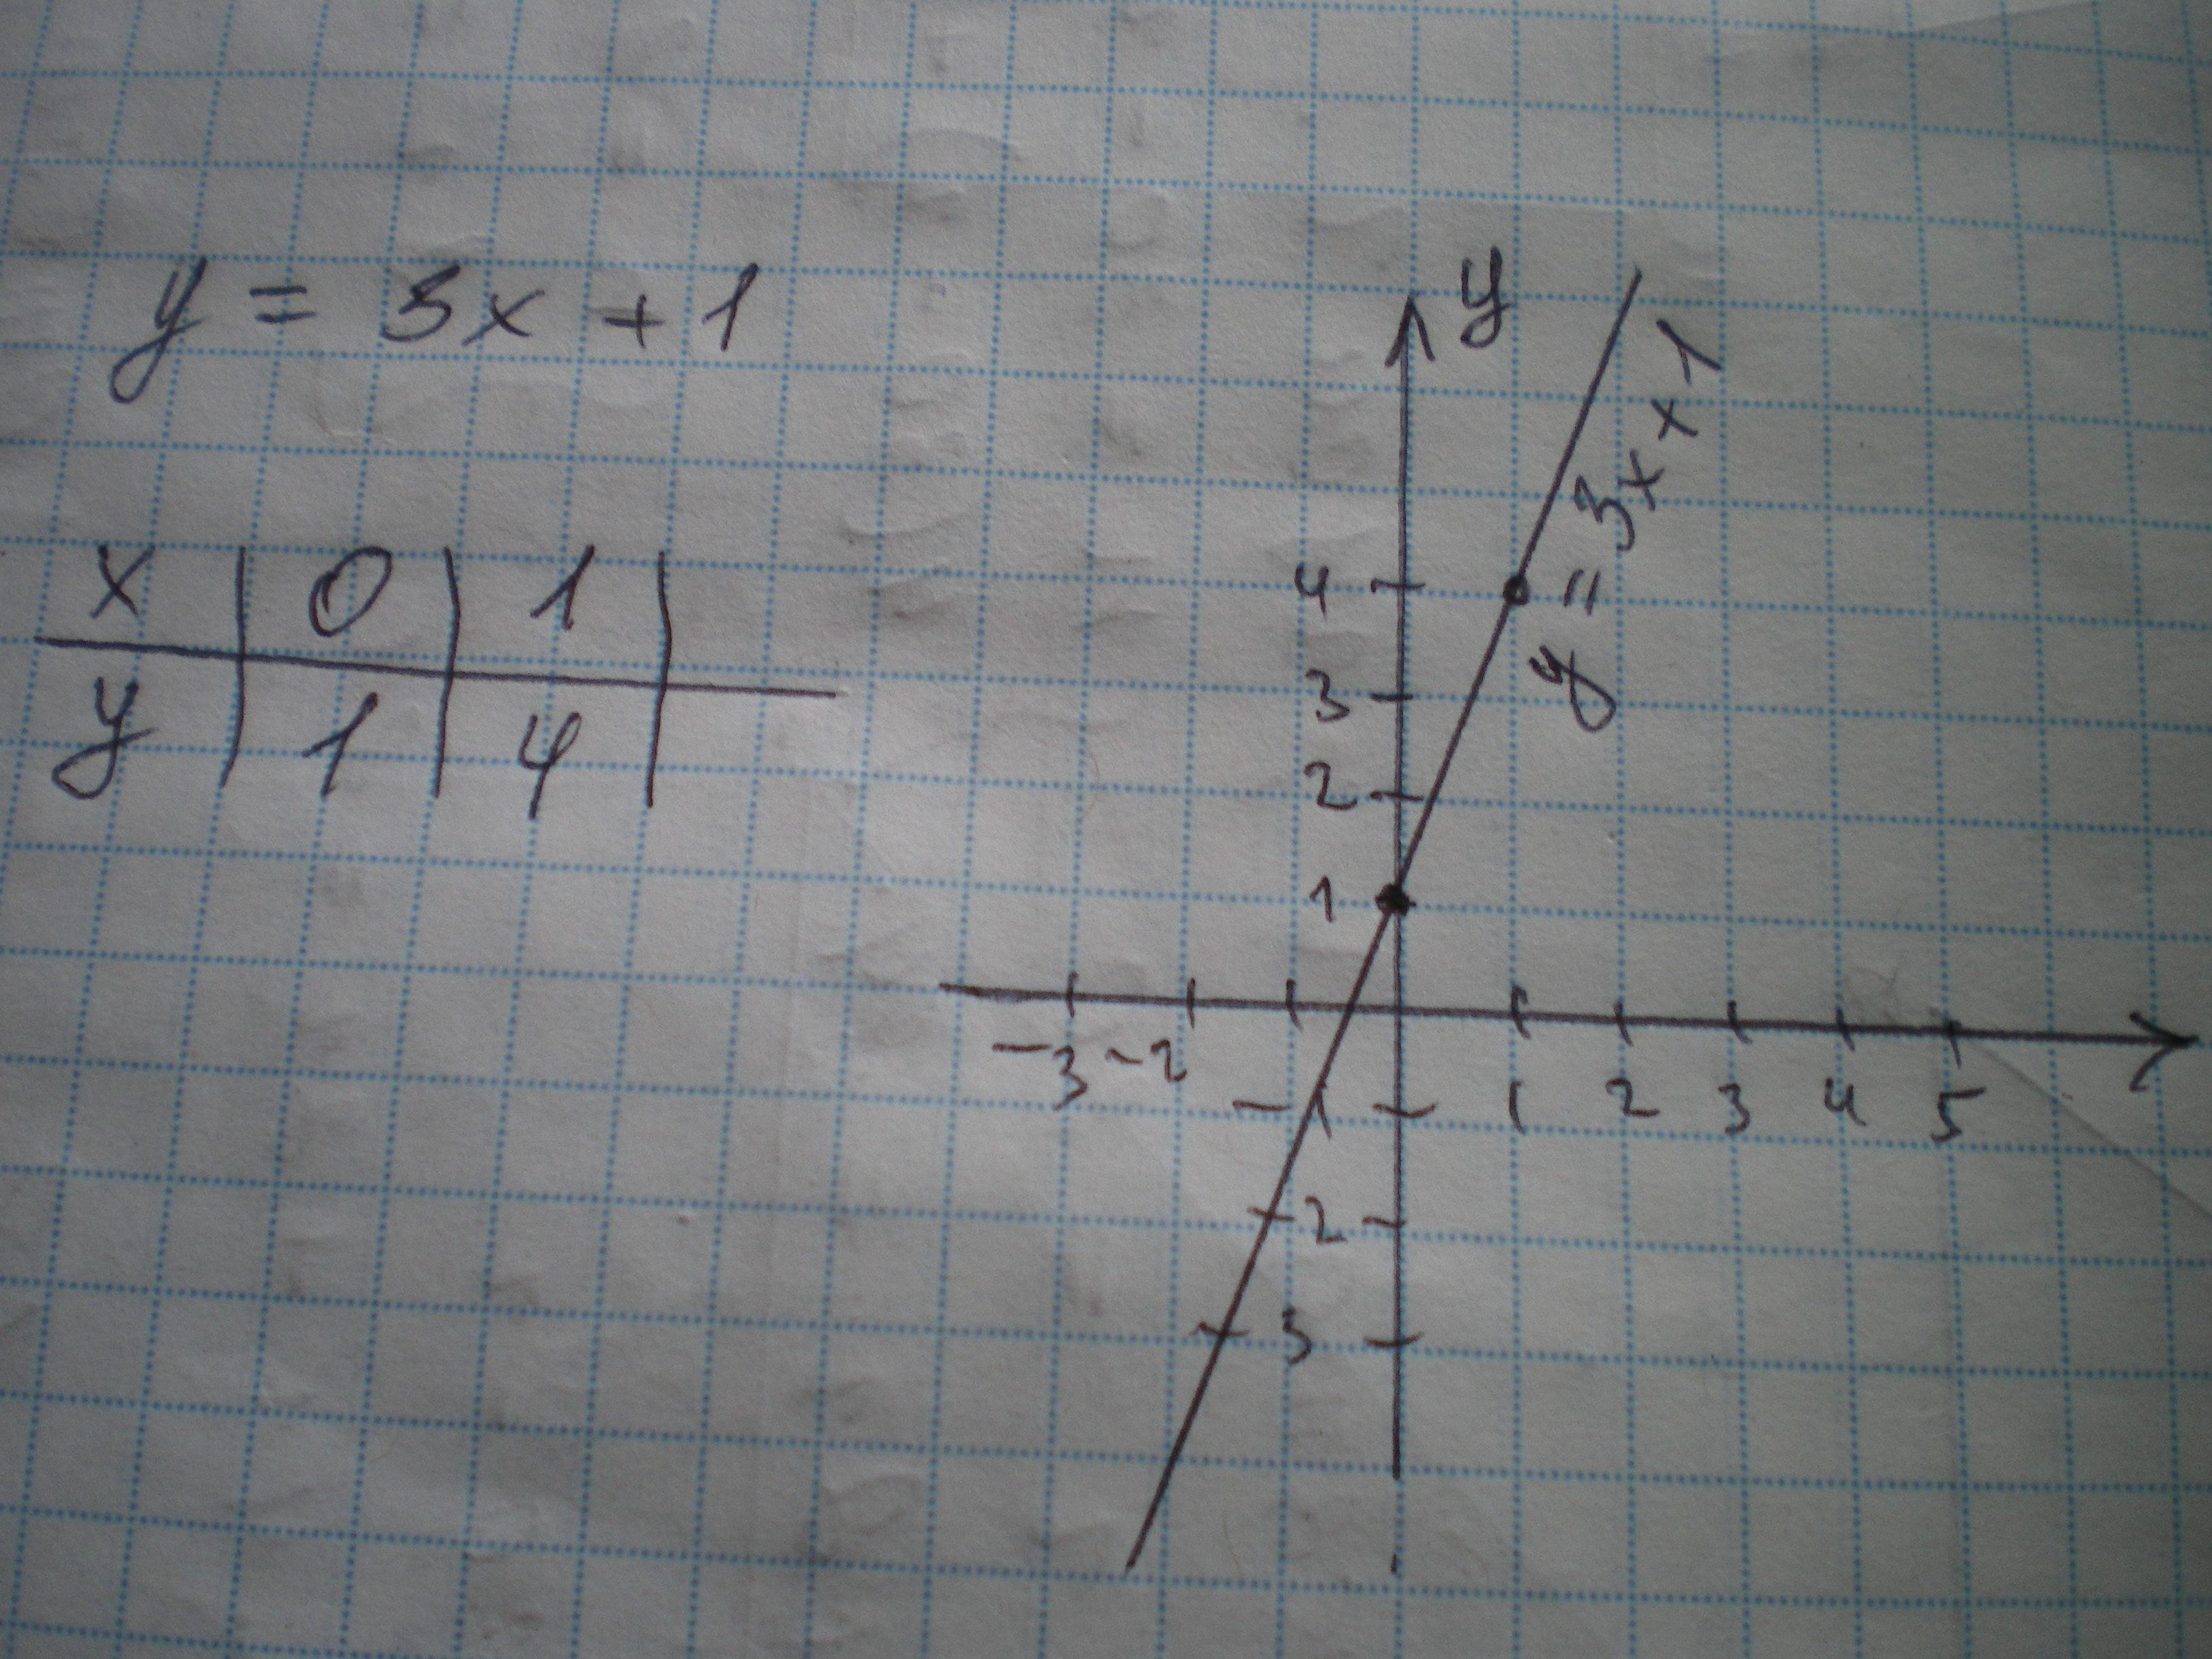 y = 3x + 1
x | 0 | 1 |
y | 1 | 4 |
y
y = 3x + 1
4
3
2
1
-3 -2 -1 1 2 3 4 5
-2
-3